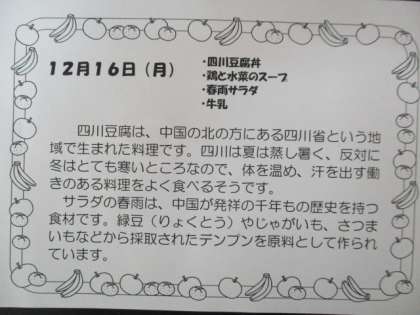 12月16日（月）
・四川豆腐丼
・鶏と水菜のスープ
・春雨サラダ
・牛乳
四川豆腐は、中国の北の方にある四川省という地
域で生まれた料理です。四川は夏は蒸し暑く、反対に
冬はとても寒いところなので、体を温め、汗を出す働
きのある料理をよく食べるそうです。
サラダの春雨は、中国が発祥の千年もの歴史を持つ
食材です。緑豆（りょくとう）やじゃがいも、さつま
いもなどから採取されたデンプンを原料として作られ
ています。